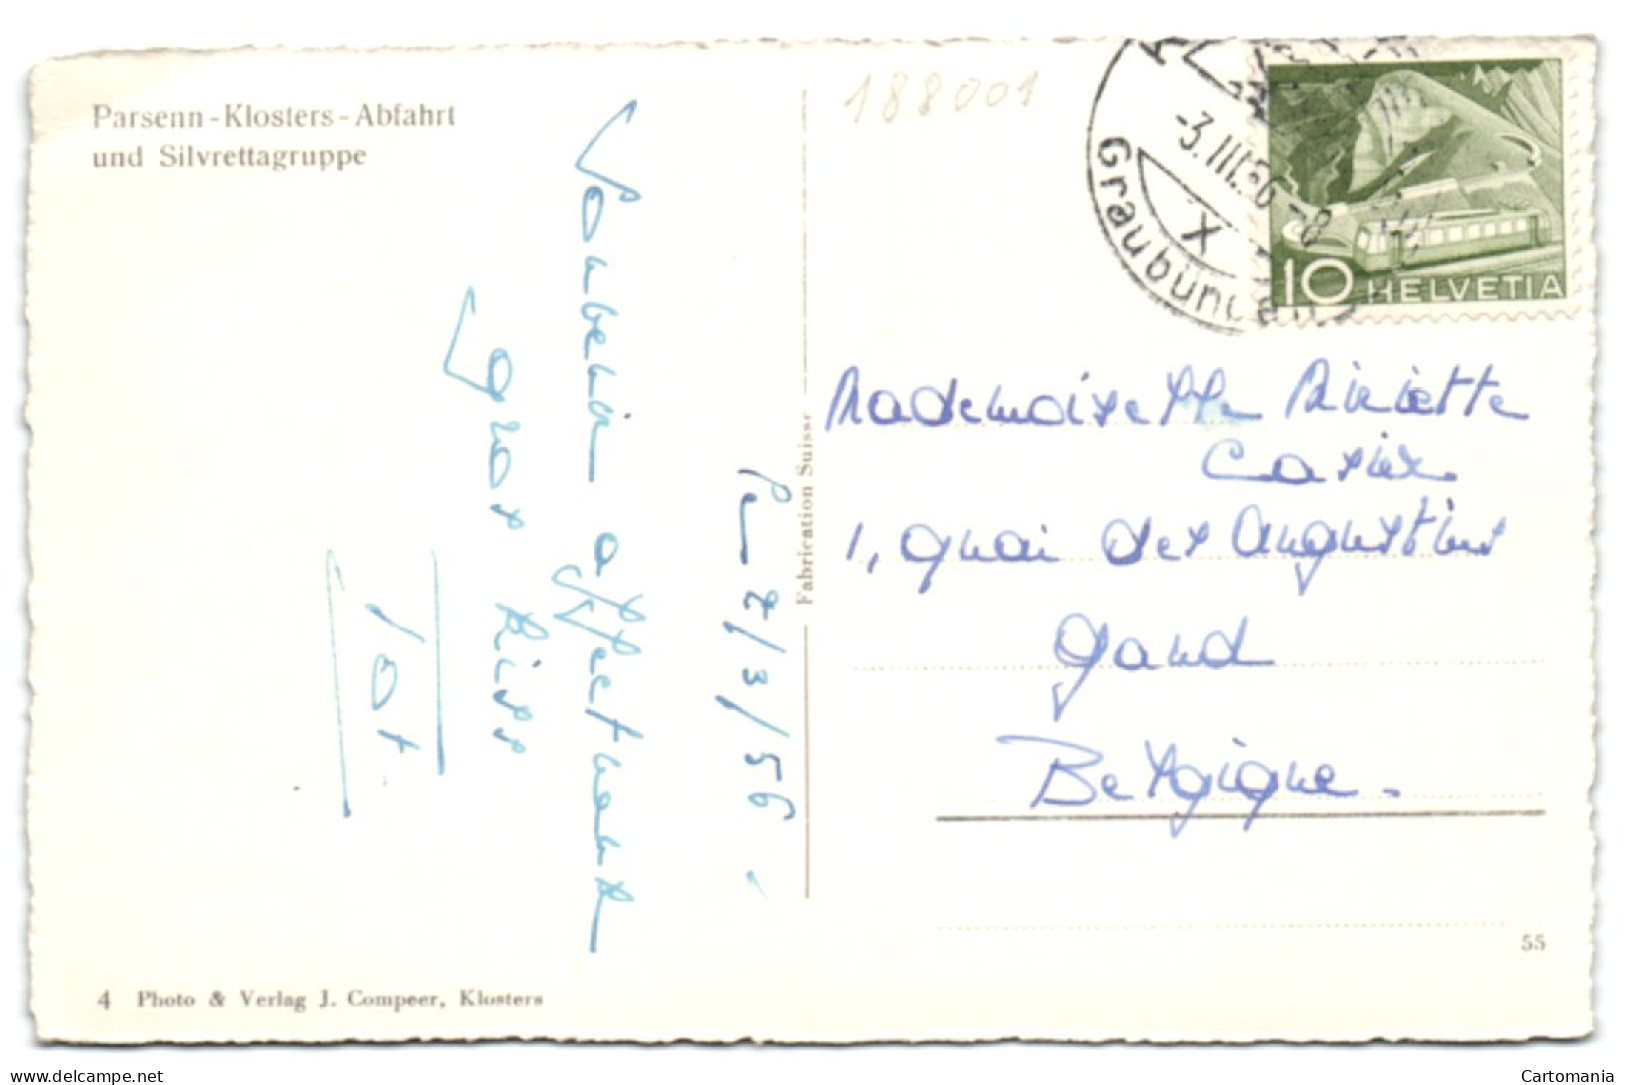 Parsenn-Klosters-Abfahrt
und Silvrettagruppe
188001
Souvenir affectueux
gros Kiss
Tot.
2/3/56
Fabrication Suisse
-3.III.56-8
X
Graubünden
10 HELVETIA
Mademoiselle
Casier
1, quai des Augustins
Gand
Belgique.
55
4 Photo & Verlag J. Compeer, Klosters
www.delcampe.net
Cartomania